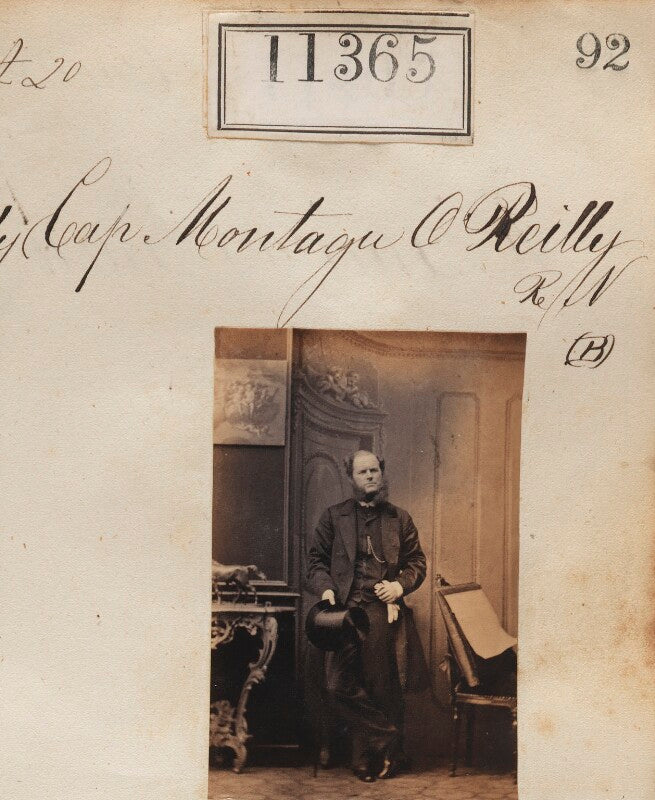 20
11365
92
Cap Montagu O'Reilly
R N
(B)